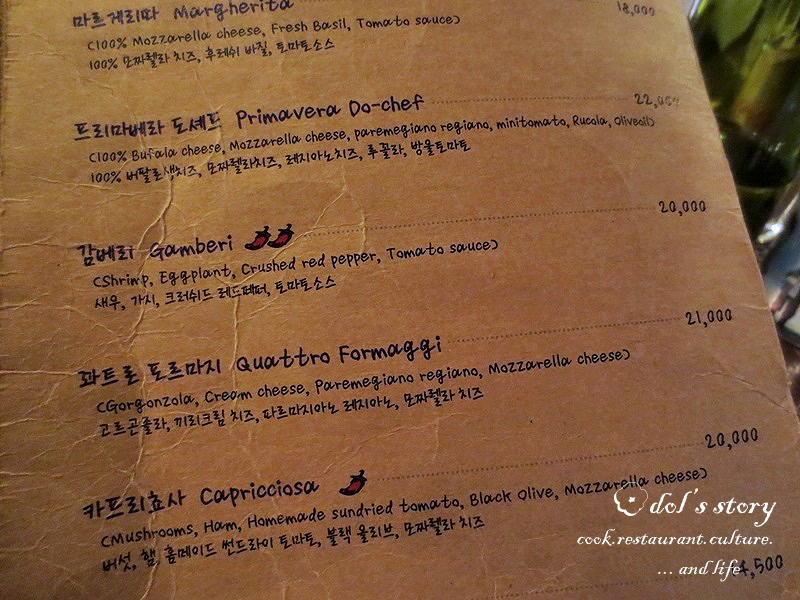 마르게리따 Margherita 18,000
(100% Mozzarella cheese, Fresh Basil, Tomato sauce)
100% 모짜렐라 치즈, 후레쉬 바질, 토마토소스
프리마베라 도셰프 Primavera Do-chef 22,000
(100% Bufala cheese, Mozzarella cheese, paremegiano regiano, minitomato, Rucola, Oliveoil)
100% 버팔로생치즈, 모짜렐라치즈, 레지아노치즈, 루꼴라, 방울토마토
감베리 Gamberi 20,000
(Shrimp, Eggplant, Crushed red pepper, Tomato sauce)
새우, 가지, 크러쉬드 레드페퍼, 토마토소스
콰트로 포르마지 Quattro Formaggi 21,000
(Gorgonzola, Cream cheese, Paremegiano regiano, Mozzarella cheese)
고르곤졸라, 끼리크림 치즈, 파르마지아노 레지아노, 모짜렐라 치즈
카프리쵸사 Capricciosa 20,000
(Mushrooms, Ham, Homemade sundried tomato, Black Olive, Mozzarella cheese)
버섯, 햄, 홈메이드 썬드라이 토마토, 블랙 올리브, 모짜렐라 치즈
dol's story
cook.restaurant.culture.
... and life